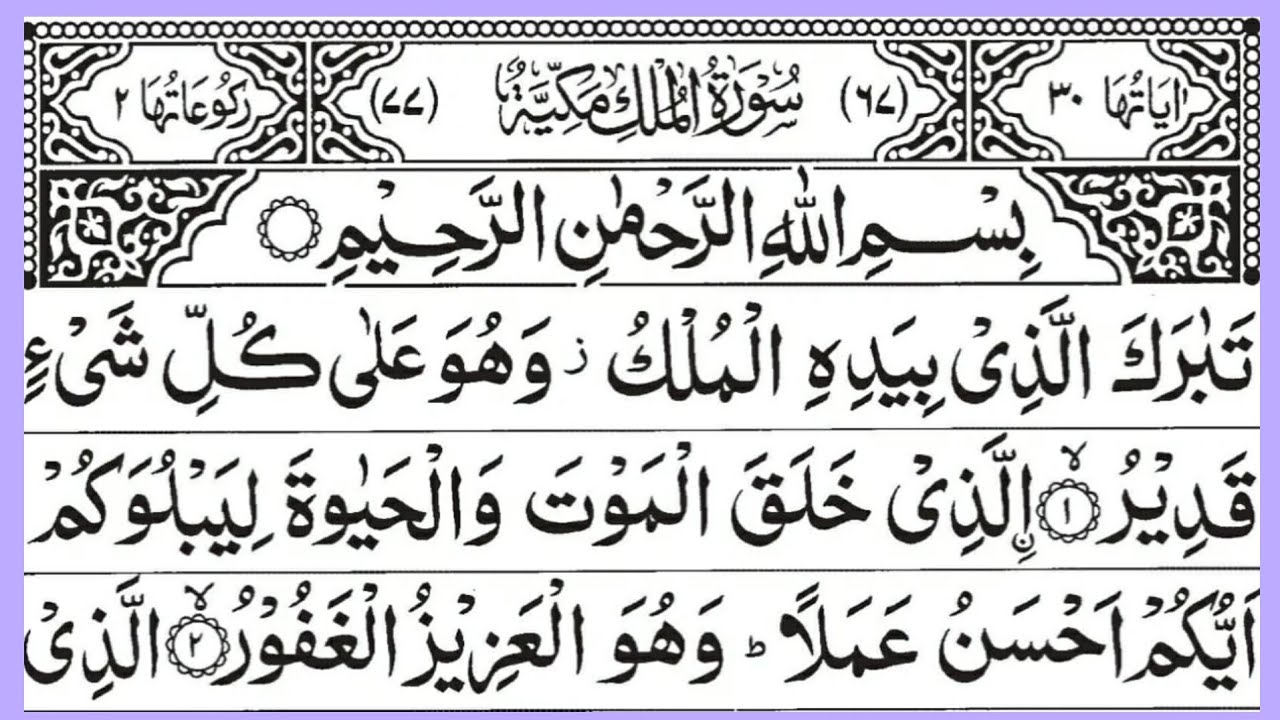 اٰيَاتُهَا ٣٠ (٦٧) سُوْرَةُ الْمُلْكِ مَكِّيَّةٌ (٧٧) رُكُوْعَاتُهَا ٢
بِسْمِ اللّٰهِ الرَّحْمٰنِ الرَّحِيْمِ
تَبٰرَكَ الَّذِىْ بِيَدِهِ الْمُلْكُ ز وَهُوَ عَلٰى كُلِّ شَىْءٍ
قَدِيْرُ ۙ ١ ۨالَّذِىْ خَلَقَ الْمَوْتَ وَالْحَيٰوةَ لِيَبْلُوَكُمْ
اَيُّكُمْ اَحْسَنُ عَمَلًا ؕ وَهُوَ الْعَزِيْزُ الْغَفُوْرُ ۙ ٢ الَّذِىْ